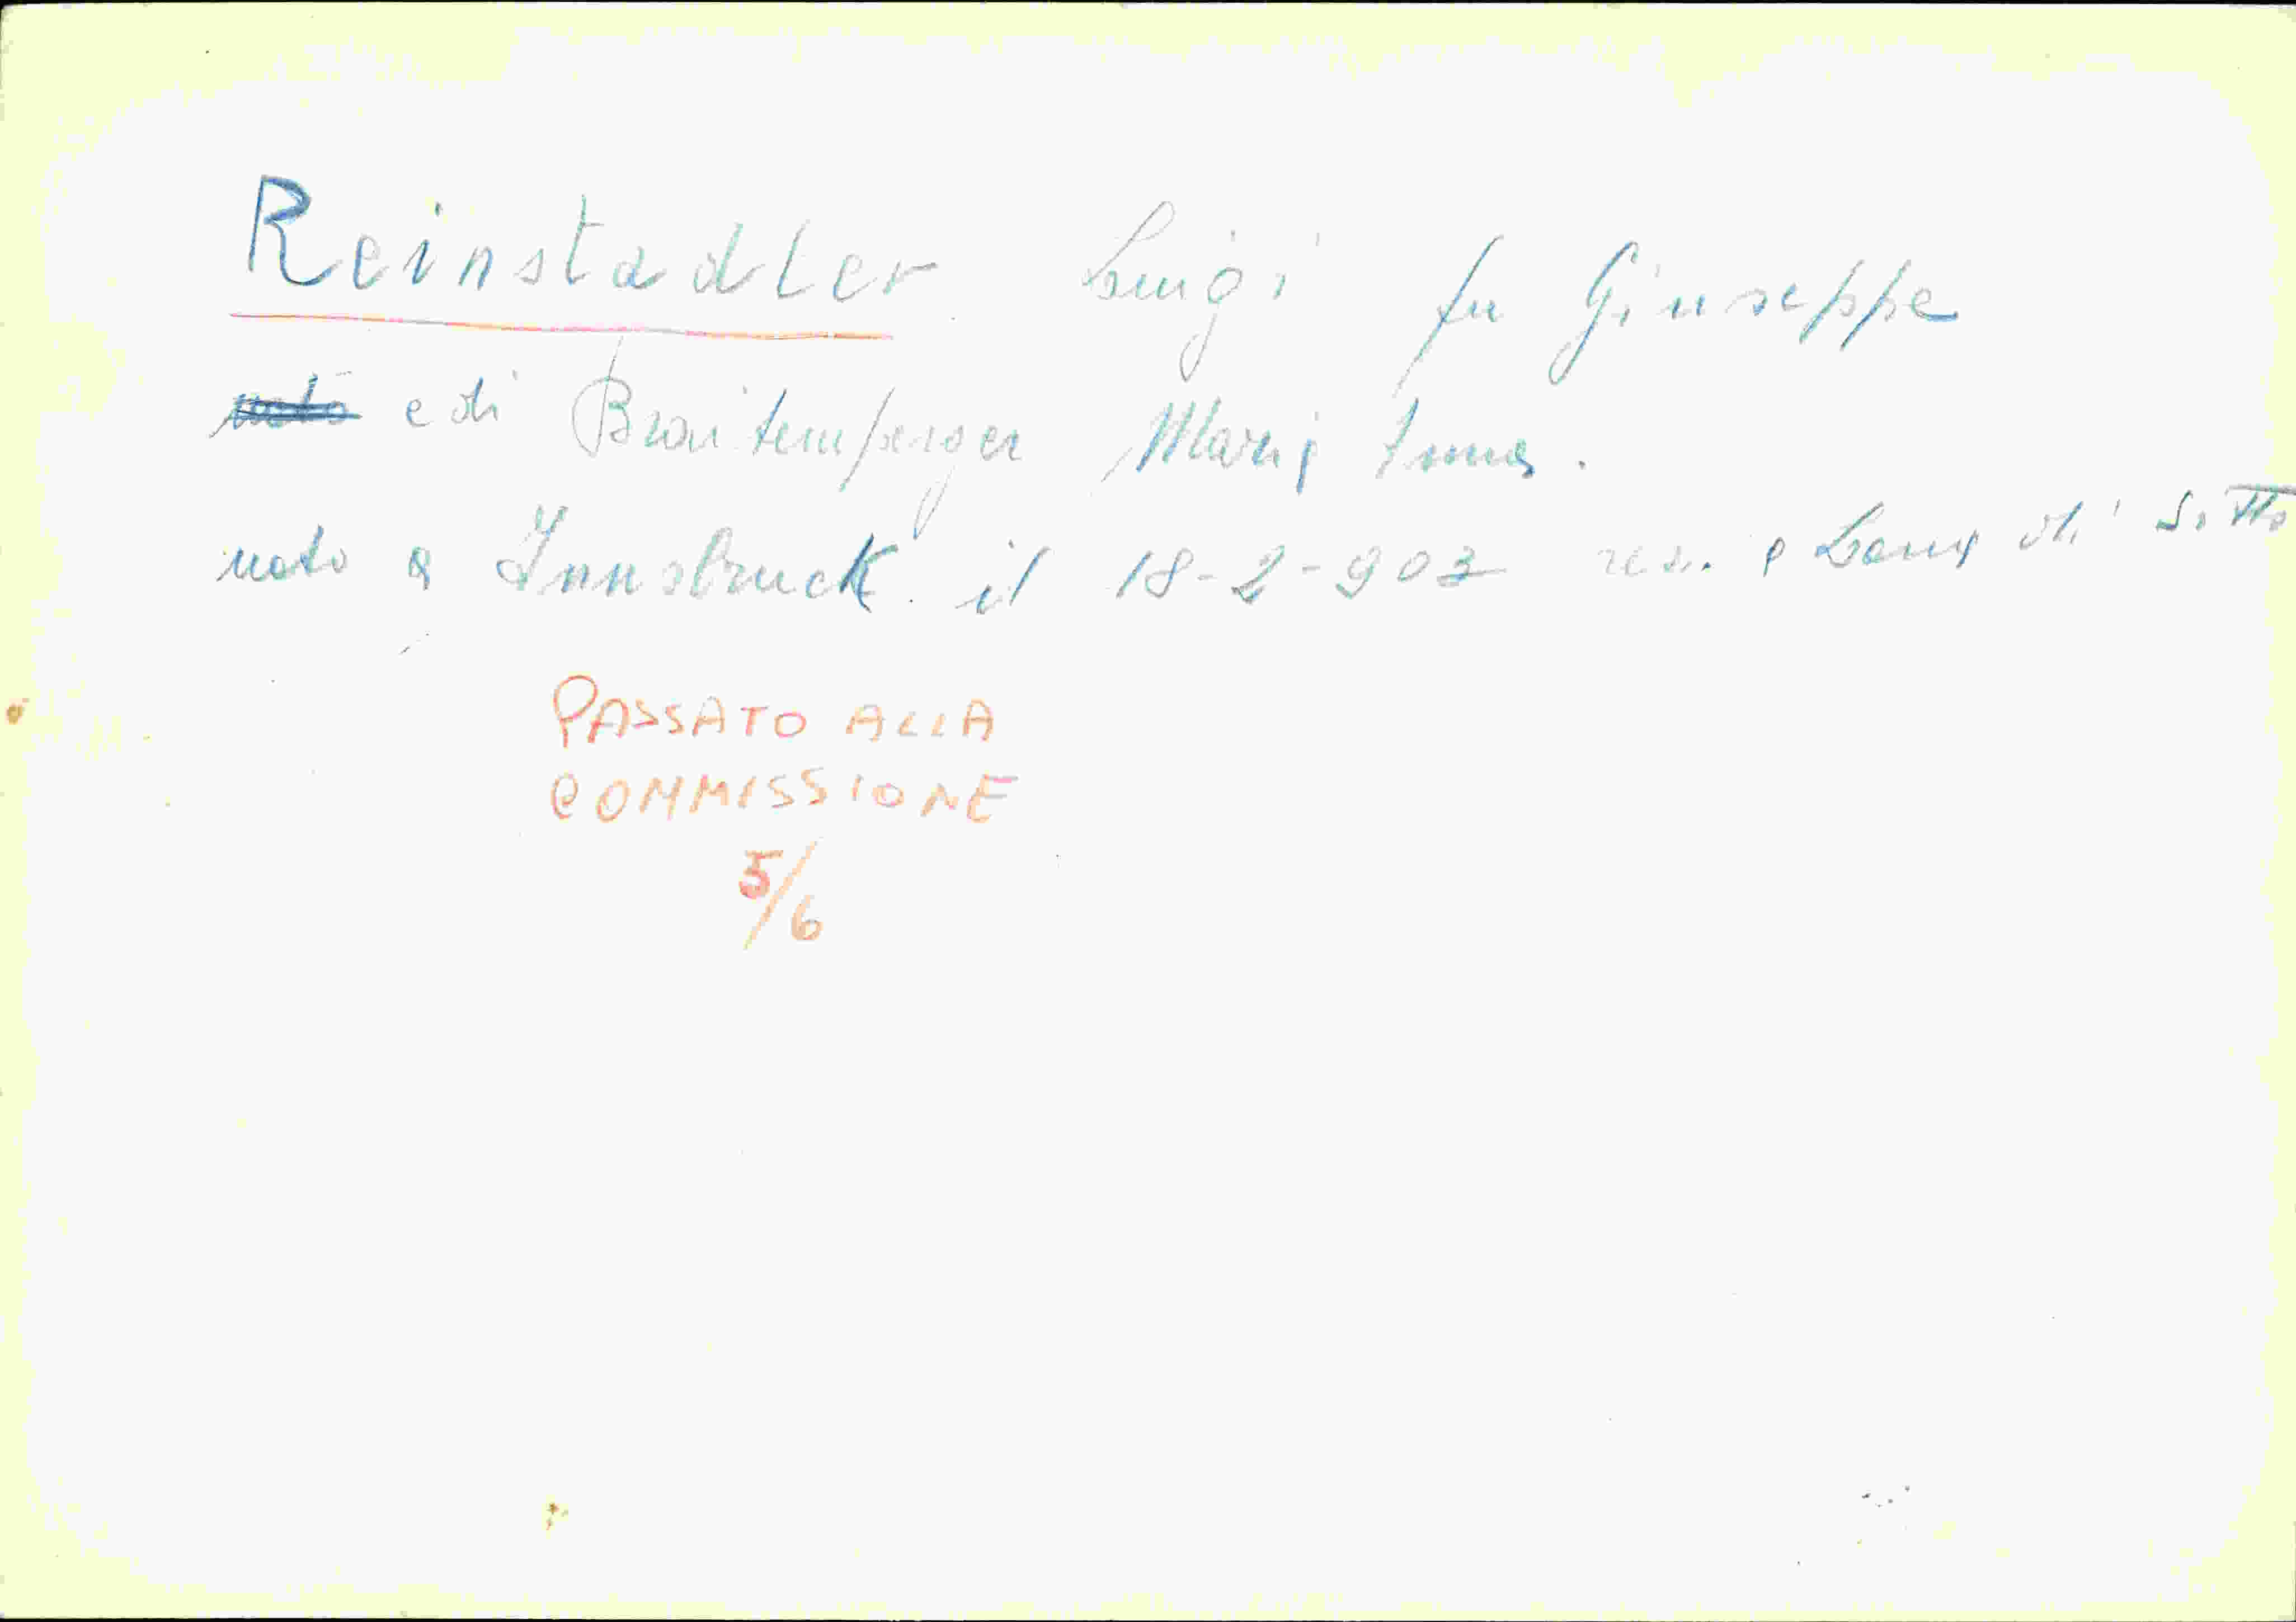 Reinstadler Luigi fu Giuseppe
e di Maria Anna.
nato a Innsbruck il 18-2-903 res. a Lana di Sotto
PASSATO ALLA
COMMISSIONE
5/6